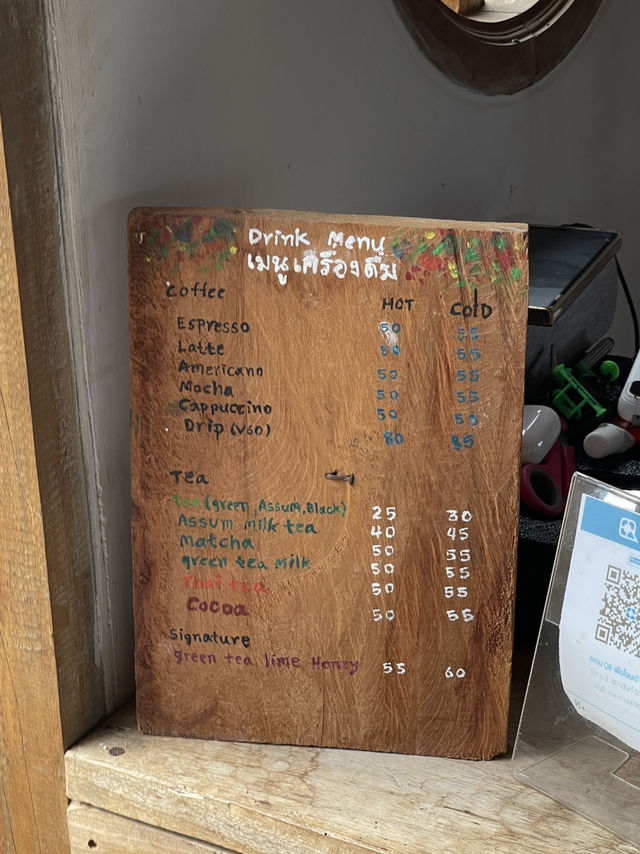 Drink Menu
เมนูเครื่องดื่ม
Coffee HOT COLD
Espresso 50 55
Latte 50 55
Americano 50 55
Mocha 50 55
Cappuccino 50 55
Drip (V60) 80 85
Tea
tea (green, Assum, Black) 25 30
Assum milk tea 40 45
Matcha 50 55
green tea Milk 50 55
Thai tea 50 55
Cocoa 50 55
Signature
green tea lime Honey 55 60